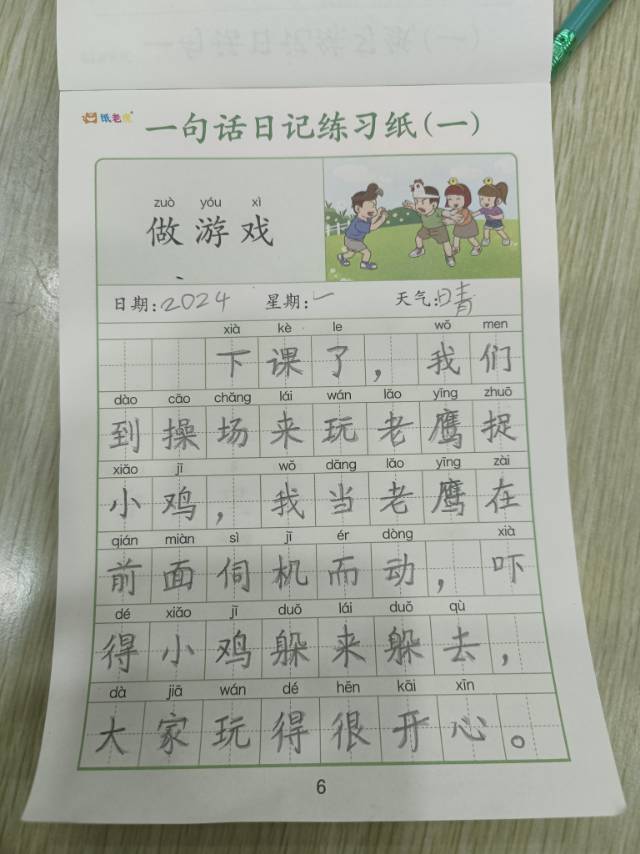 纸老虎
一句话日记练习纸(一)
zuò yóu xì
做游戏
日期:2024 星期:一 天气:晴
xià kè le wǒ men
下课了,我们
dào cāo chǎng lái wán lǎo yīng zhuō
到操场来玩老鹰捉
xiǎo jī wǒ dāng lǎo yīng zài
小鸡,我当老鹰在
qián miàn sì jī ér dòng xià
前面伺机而动,吓
dé xiǎo jī duǒ lái duǒ qù
得小鸡躲来躲去,
dà jiā wán dé hěn kāi xīn
大家玩得很开心。
6